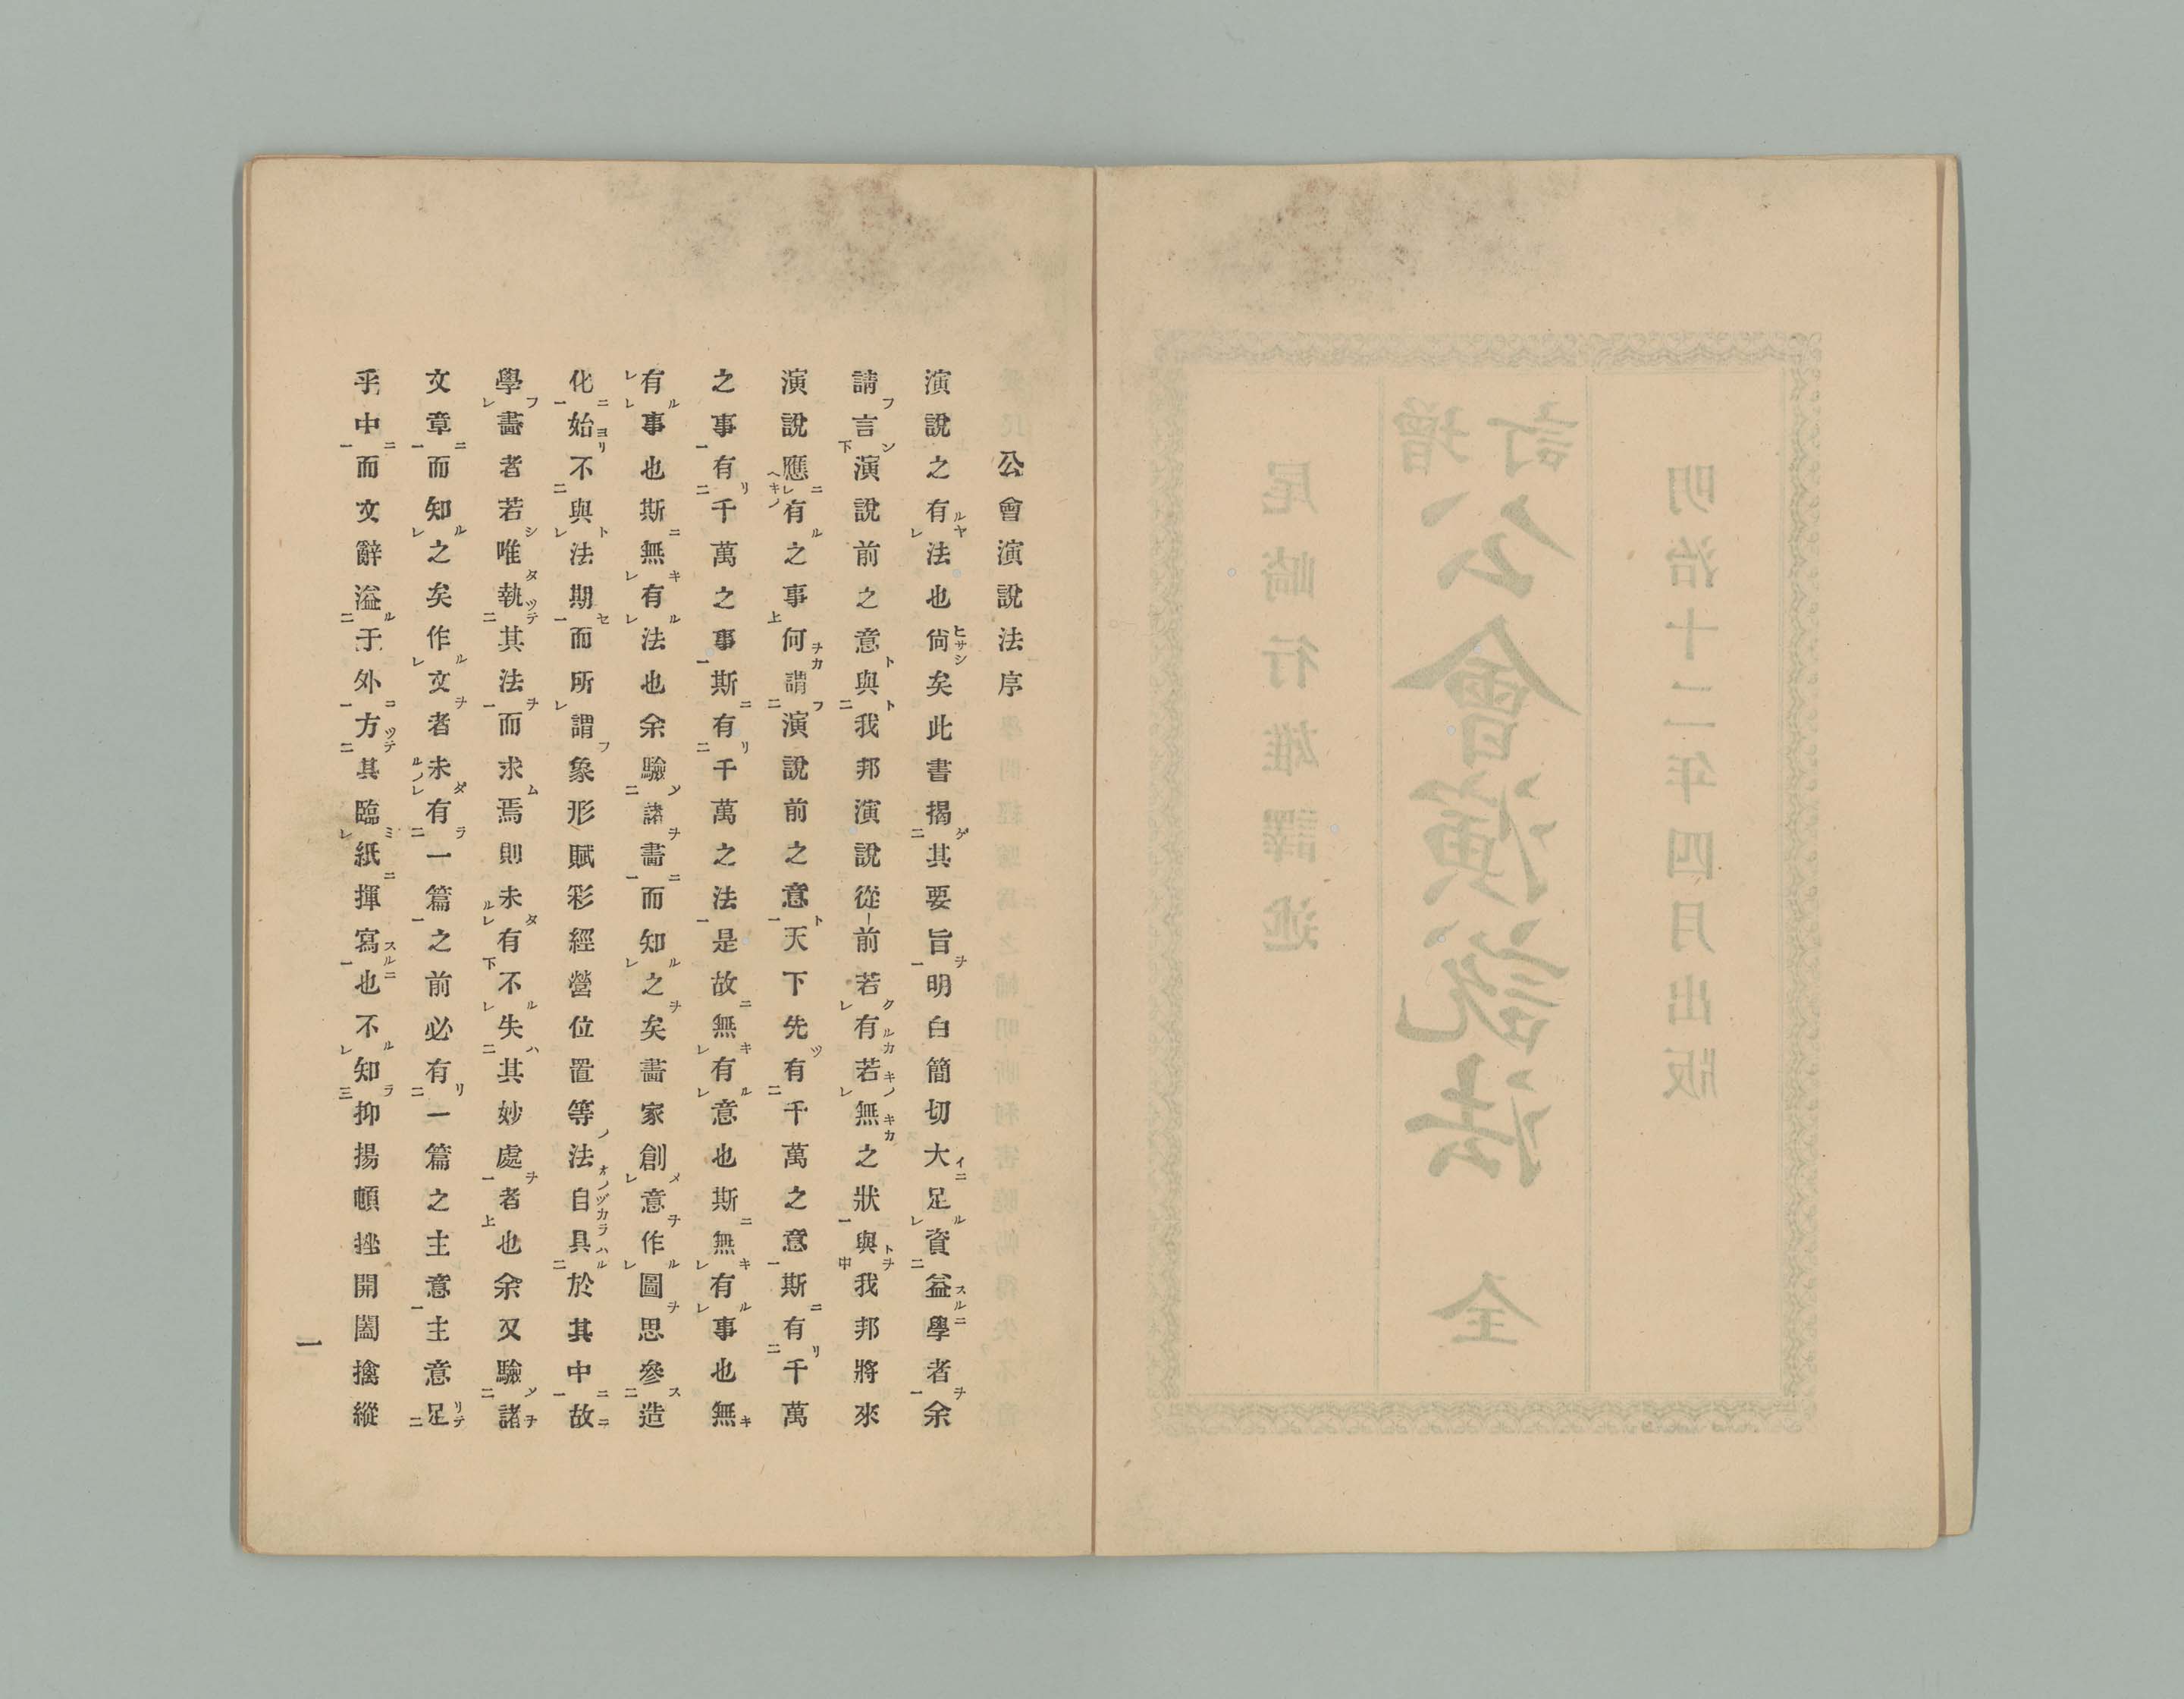 明治十二年四月出版
增訂公會演說法 全
尾崎行雄譯述
公會演說法序
演說之有法也尙矣此書揭其要旨明白簡切大足資益學者余
請言演說前之意與我邦演說從前若有若無之狀與我邦將來
演說應有之事何謂演說前之意天下先有千萬之意斯有千萬
之事有千萬之事斯有千萬之法是故無有意也斯無有事也無
有事也斯無有法也余驗諸畵而知之矣畵家創意作圖思參造
化始不與法期而所謂象形賦彩經營位置等法自具於其中故
學畵者若唯執其法而求焉則未有不失其妙處者也余又驗諸
文章而知之矣作文者未有一篇之前必有一篇之主意主意足
乎中而文辭溢于外方其臨紙揮寫也不知抑揚頓挫開闔擒縱
一